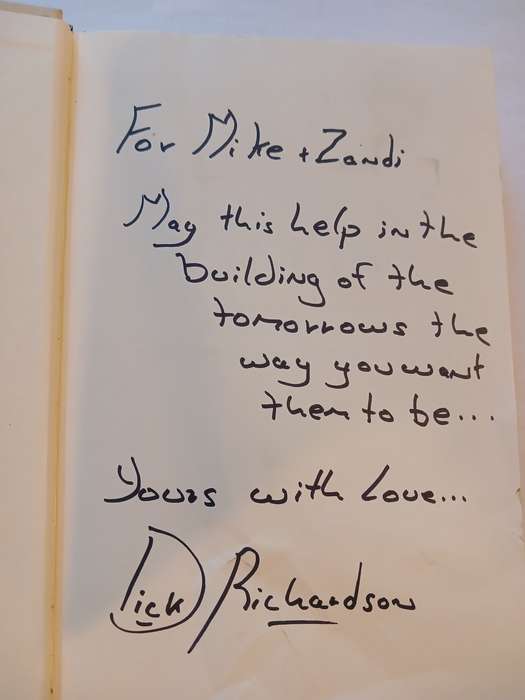 For Mike + Zandi
May this help in the
building of the
tomorrows the
way you want
them to be...
Yours with Love...
Dick Richardson